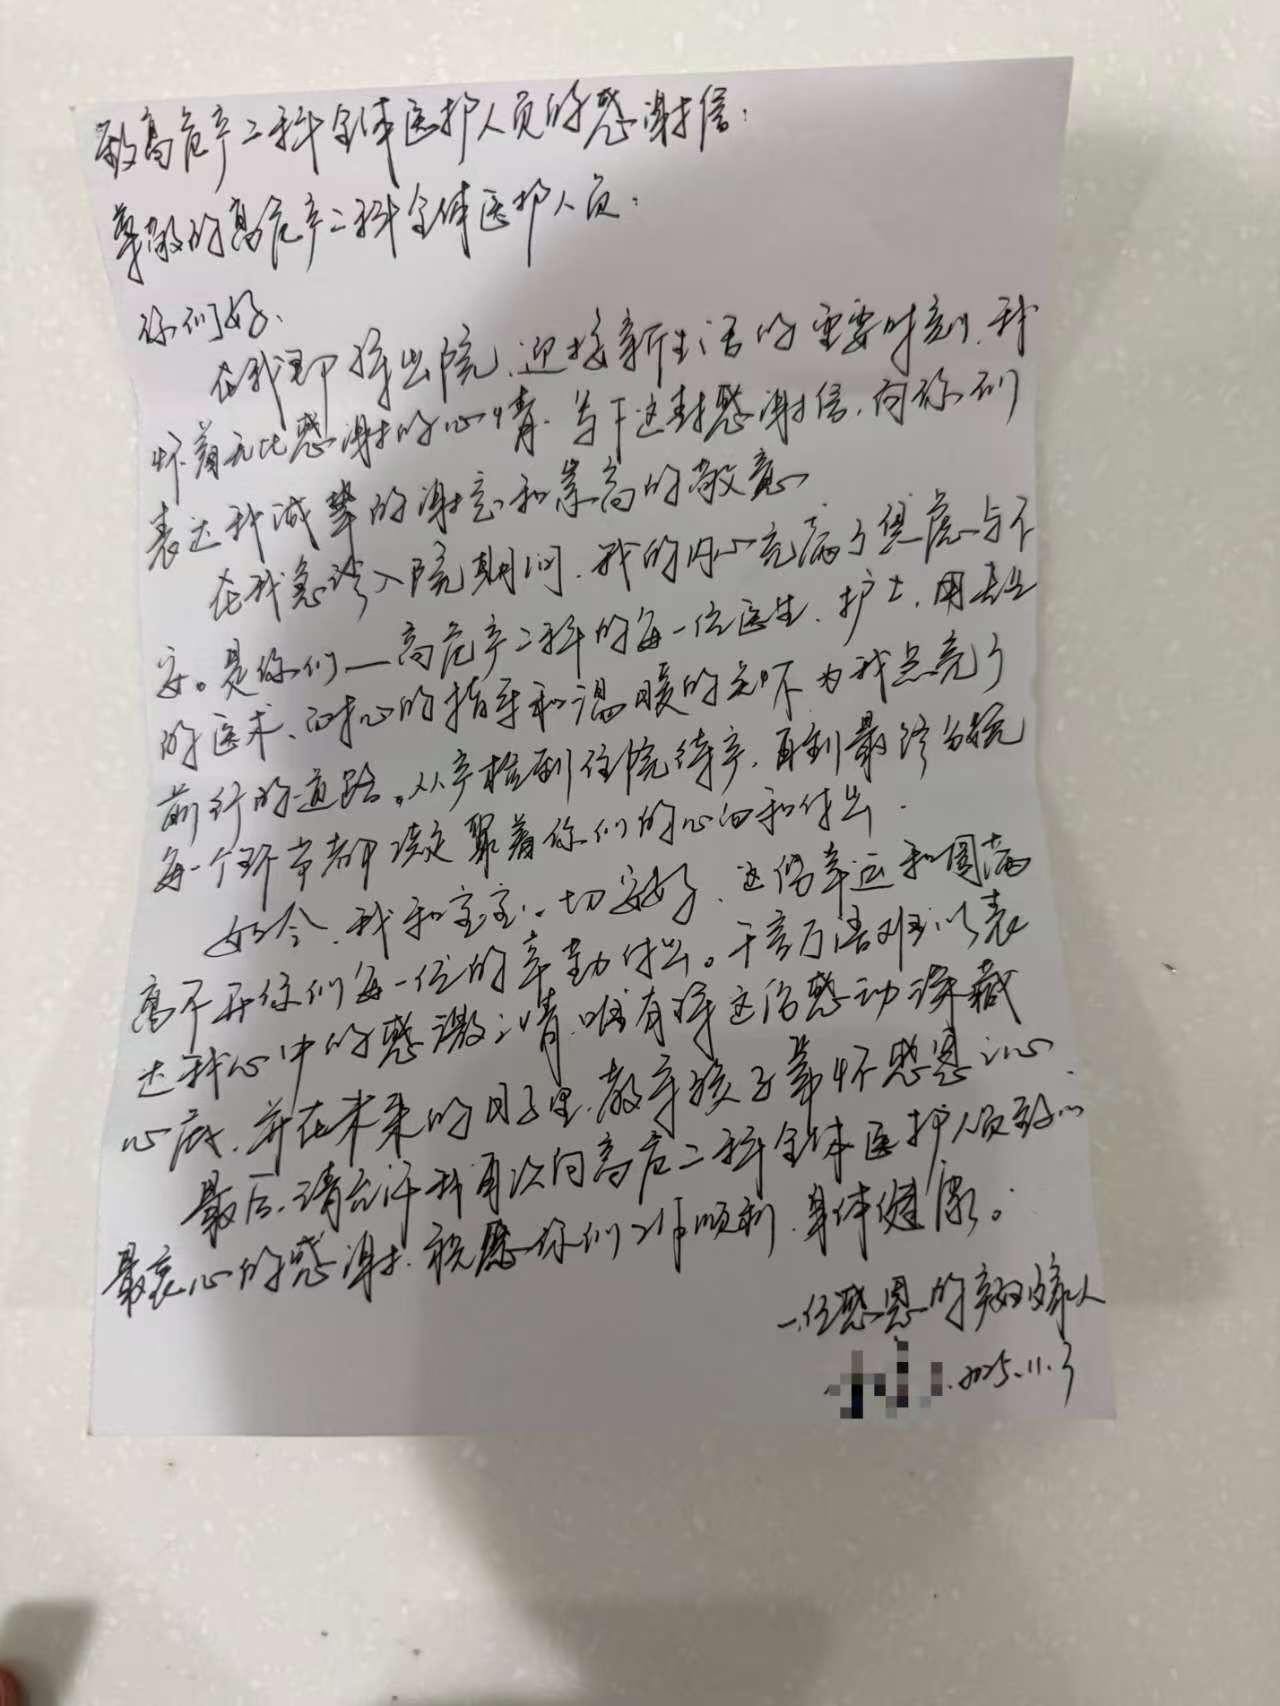 致高危产二科全体医护人员的感谢信:
尊敬的高危产二科全体医护人员:
你们好、
在我即将出院、迎接新生活的重要时刻、我
怀着无比感谢的心情、写下这封感谢信、向你们
表达我诚挚的谢意和崇高的敬意
在我急诊入院期间、我的内心充满了焦虑与不
安。是你们一高危产二科的每一位医生、护士、用专业
的医术、耐心的指导和温暖的关怀为我点亮了
前行的道路。从产检到住院待产、再到最终分娩
每一个环节都凝聚着你们的心血和付出.
如今、我和宝宝一切安好、这份幸运和圆满
离不开你们每一位的辛勤付出。千言万语难以表
达我心中的感激之情、唯有将这份感动深藏
心底、并在未来的日子里、教导孩子常怀感恩之心、
最后、请允许我再次向高危二科全体医护人员致以
最衷心的感谢、祝愿你们工作顺利、身体健康。
一位感恩的产妇家人
2025.11.3